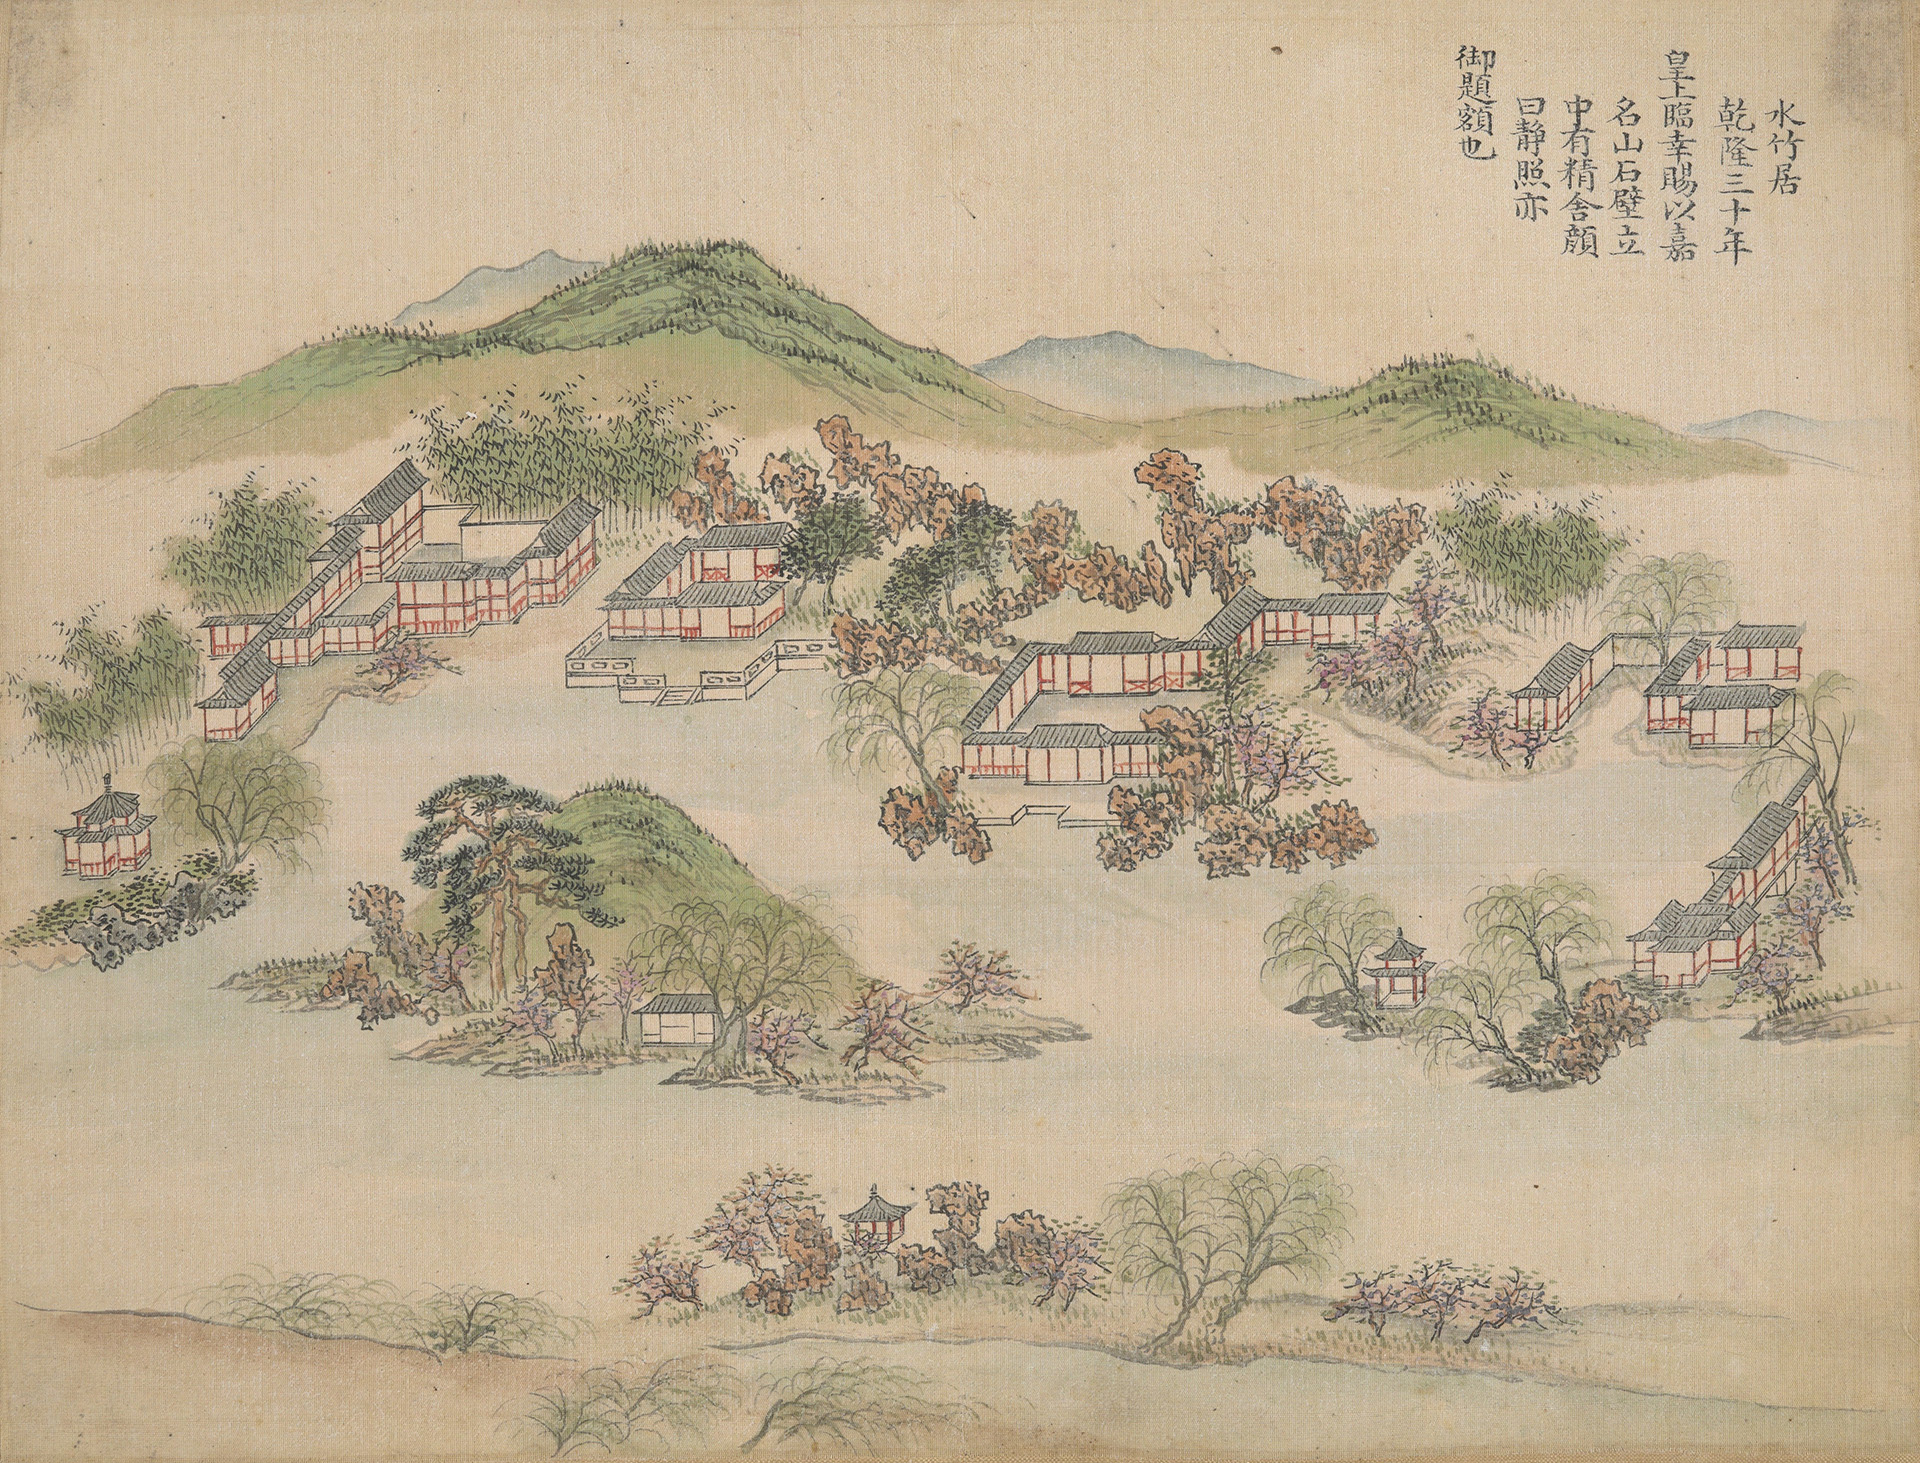 水竹居
乾隆三十年
皇上臨幸賜以嘉
名山石壁立
中有精舎顔
曰静照亦
御題額也